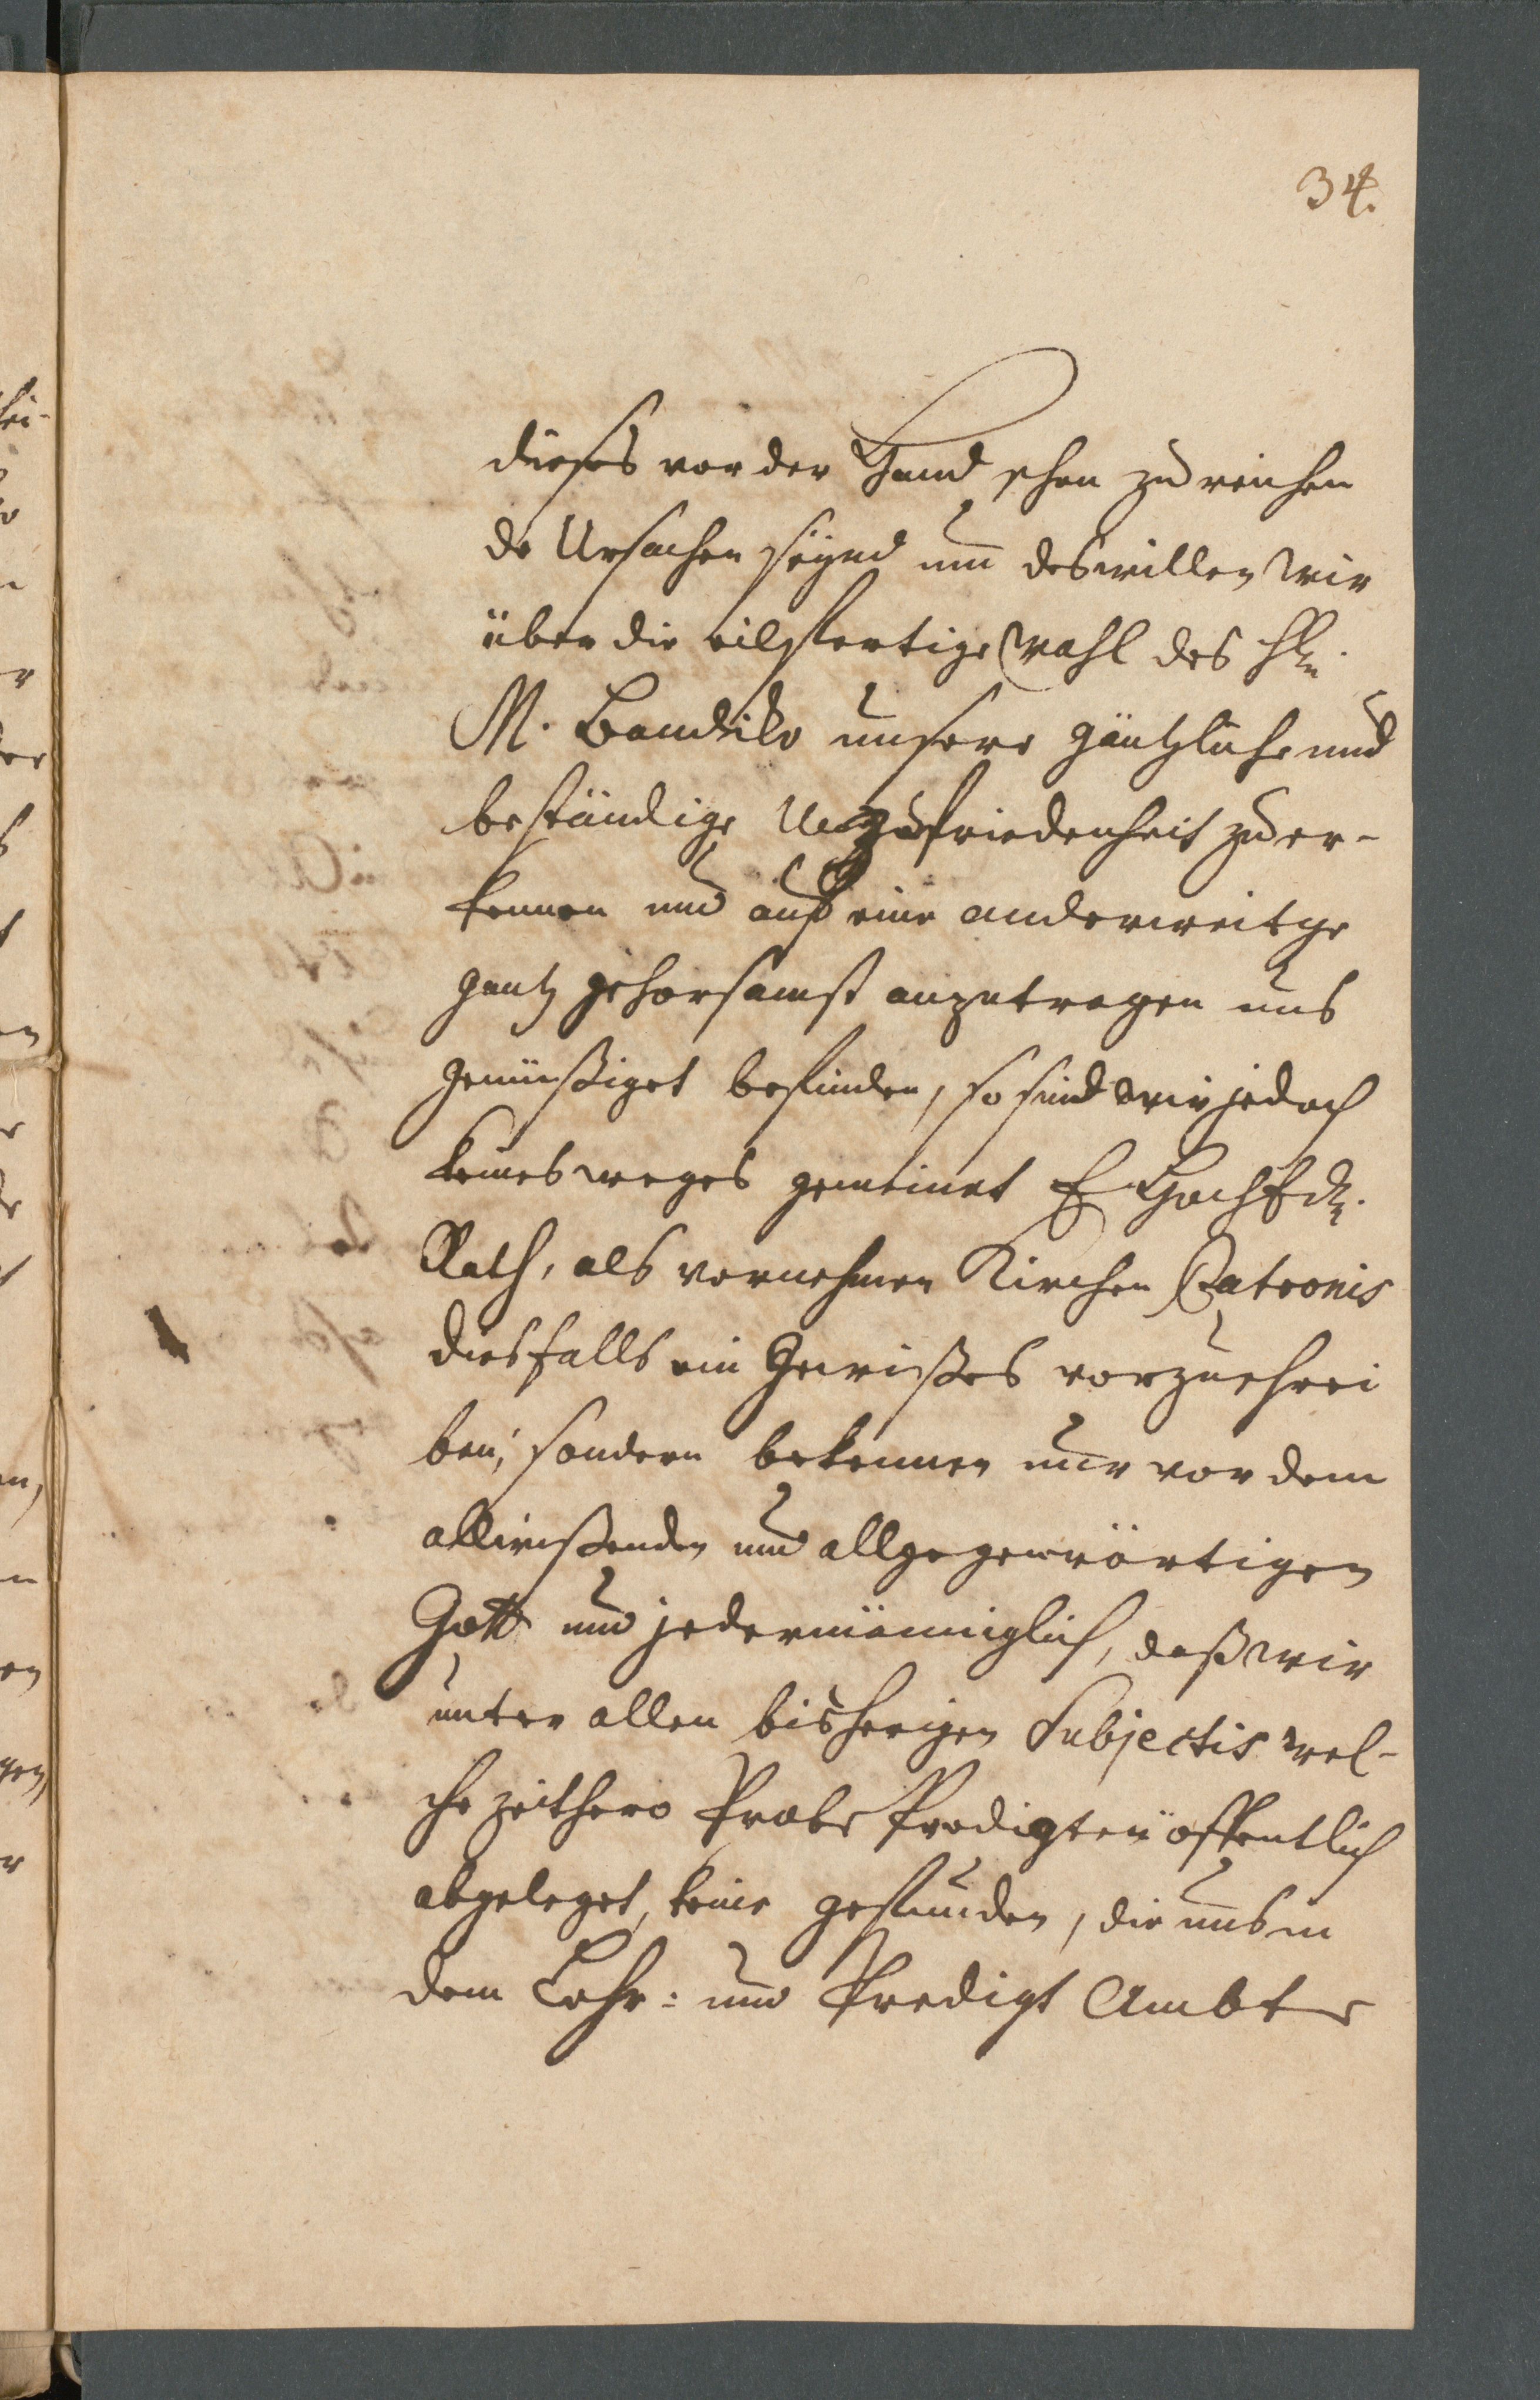 34.
dieses vor der Hand schon zureichen
de Ursachen seynd um deswillen wir
über die eilfertige Wahl des H.
M. Baudiks unsere gäntzliche und
beständige Unzufriedenheit zu er-
kennen und auf eine anderweitge
gantz gehorsamst anzutragen uns
gemüßiget befinden, so sind wir jedoch
keinesweges gemeinet E. HochEdl.
Rath, als vornehmen Kirchen Patronis
diesfalls ein Gewißes vorzuschrei
ben; sondern bekennen nur vor dem
allwißenden und allgegenwärtigen
Gott und jedermänniglich, daß wir
unter allen bisherigen Subjectis wel-
che zeithero Probe Predigten öffentlich
abgeleget, keine gefunden, die uns in
dem Lehr- und Predigt Ambte